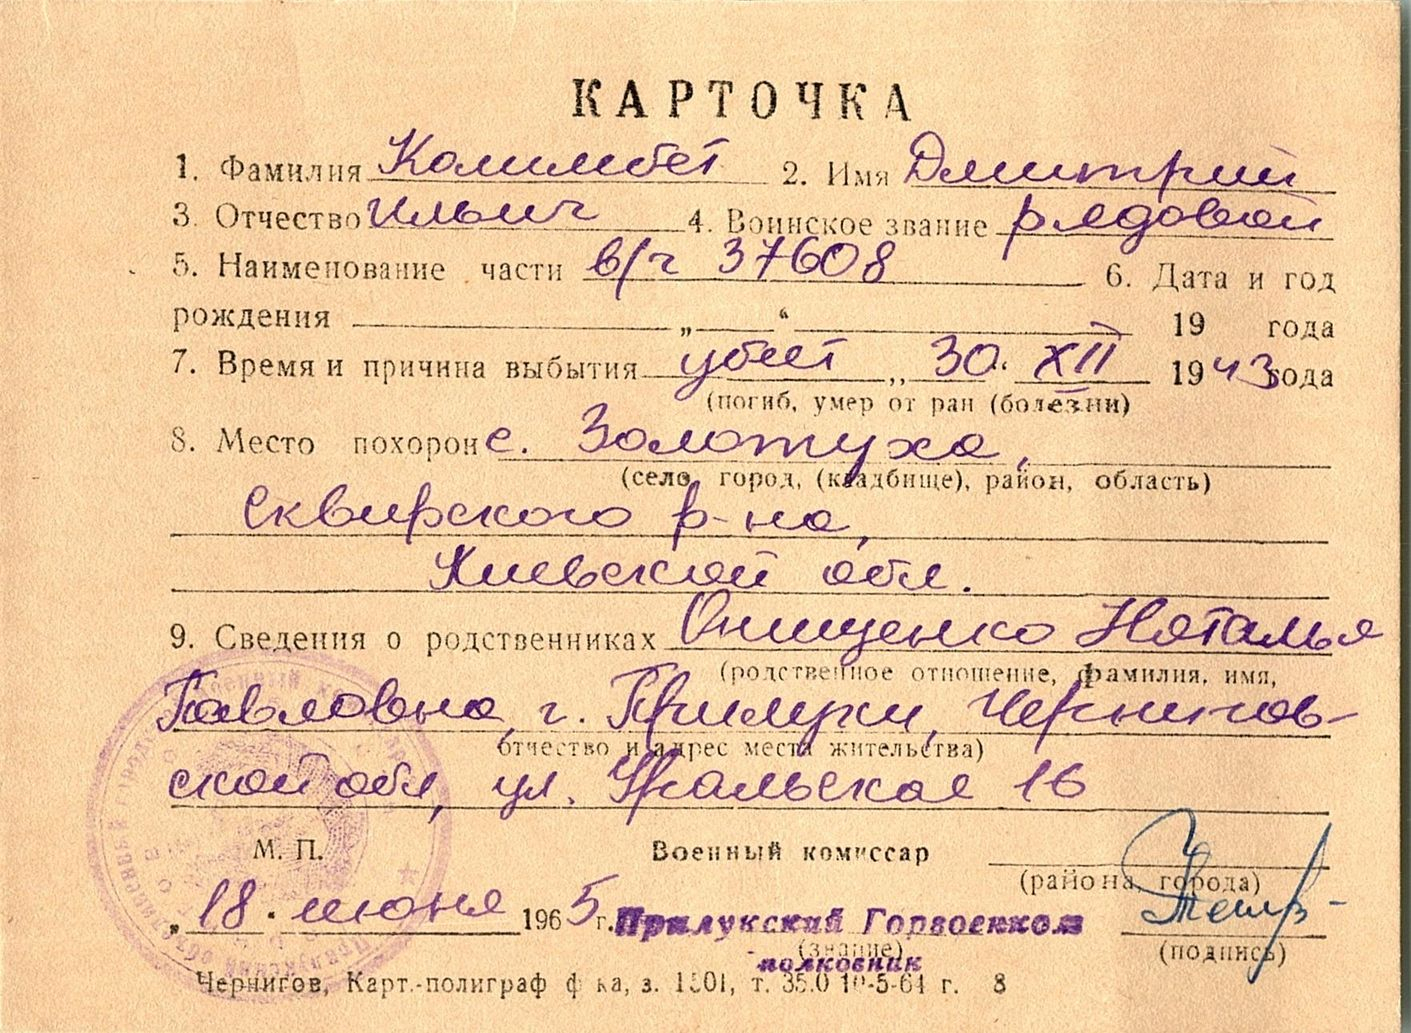 КАРТОЧКА
1. Фамилия Колимбет 2. Имя Дмитрий
3. Отчество Ильич 4. Воинское звание рядовой
5. Наименование части в/ч 37608 6. Дата и год
рождения „ “ 19 года
7. Время и причина выбытия убит „30“ XII 1943 года
(погиб, умер от ран (болезни)
8. Место похорон с. Золотуха,
(село, город, (кладбище), район, область)
Сквирского р-на,
Киевской обл.
9. Сведения о родственниках Онищенко Наталья
(родственное отношение, фамилия, имя,
Павловна, г. Прилуки, Чернигов-
отчество и адрес места жительства)
ской обл, ул. Уральская 16
М. П. Военный комиссар
(района, города)
„18. июня 1965 г. Прилукский Горвоенком
(звание) (подпись)
полковник
Чернигов, Карт.-полиграф ф-ка, з. 1501, т. 35.0 10-5-64 г. 8